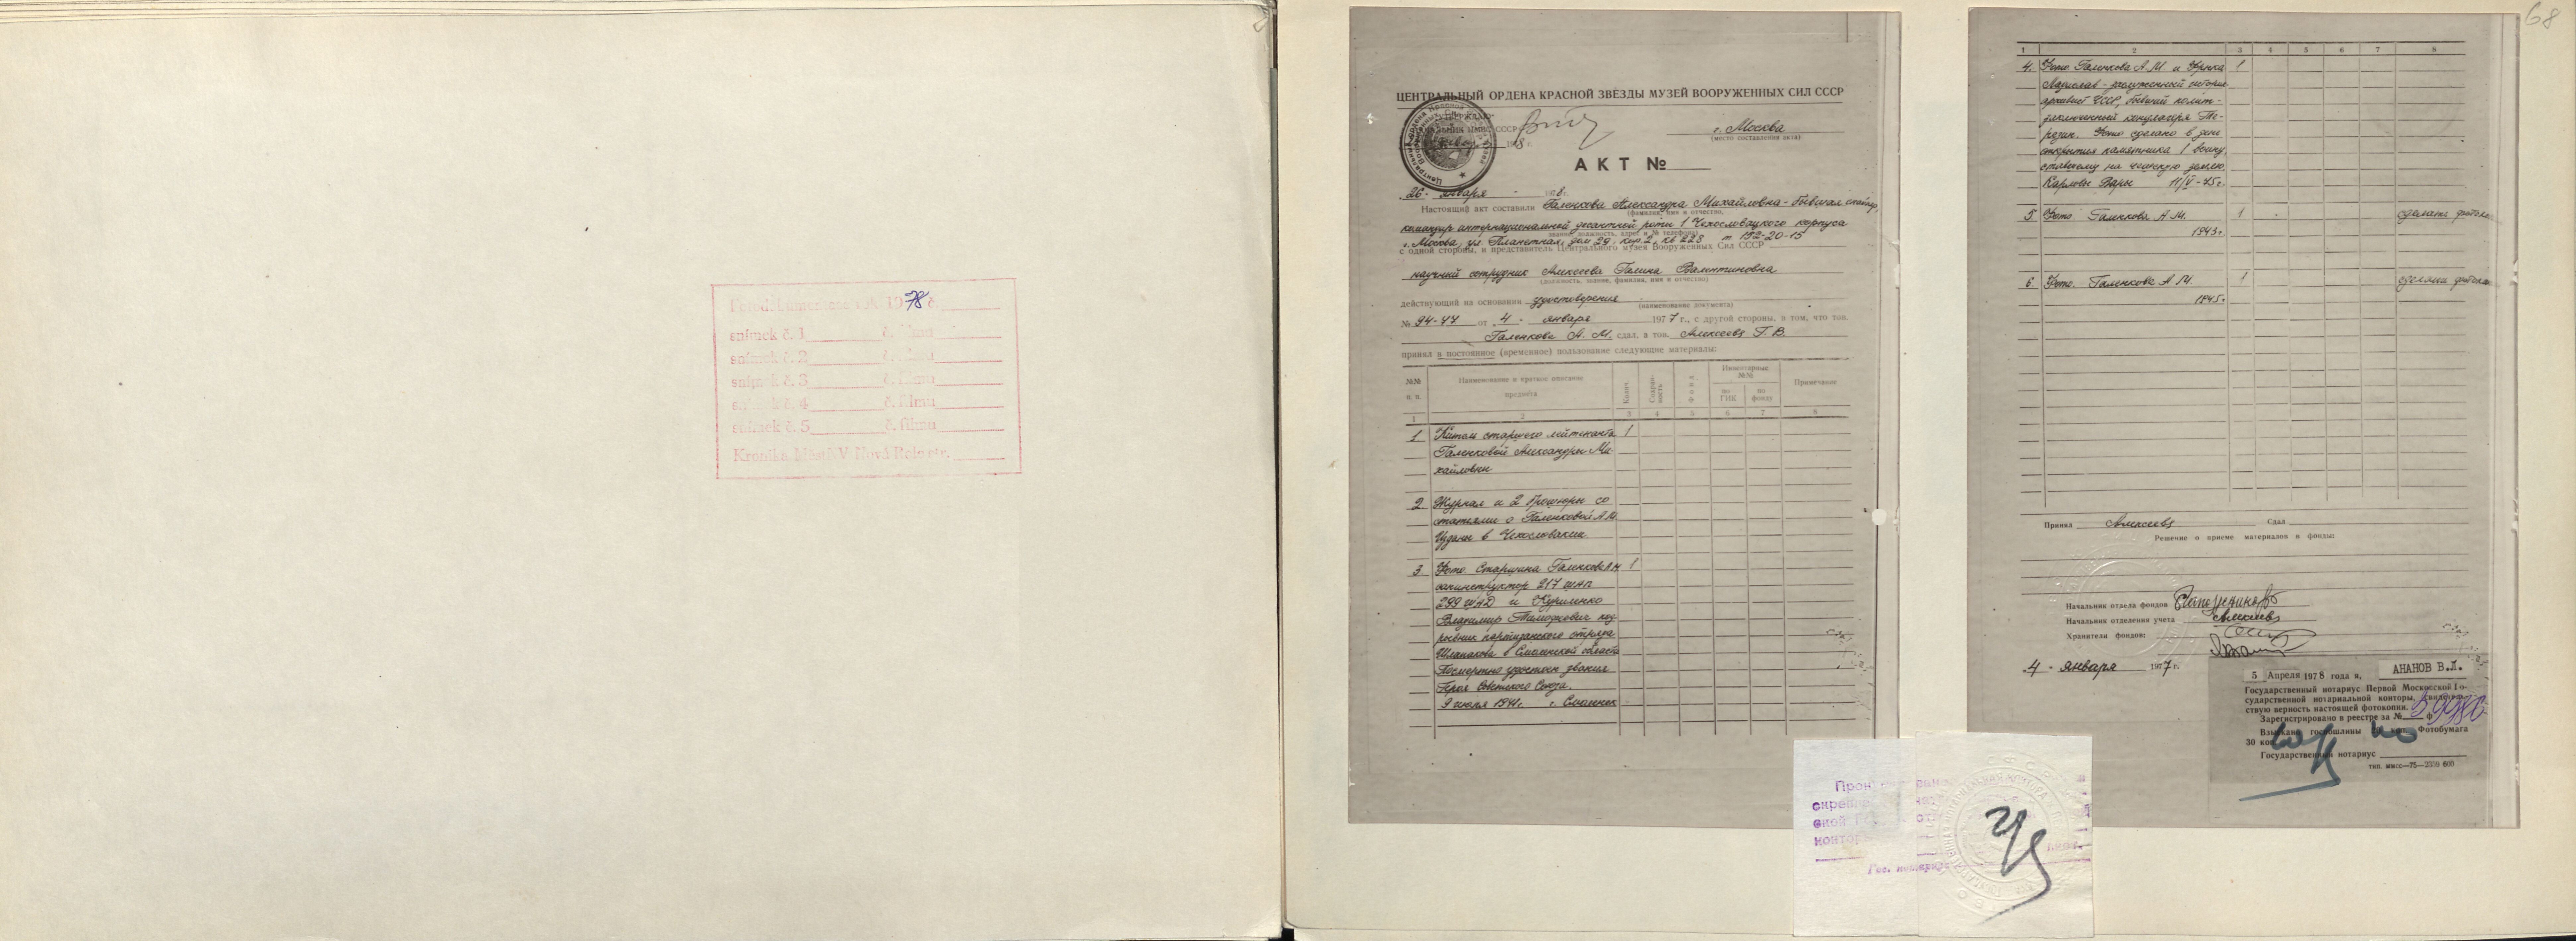 Fotodokumentace A 1978 č.
snímek č. 1 č. filmu
snímek č. 2 č. filmu
snímek č. 3 č. filmu
snímek č. 4 č. filmu
snímek č. 5 č. filmu
Kronika MěstNV Nová Role str.
68
ЦЕНТРАЛЬНЫЙ ОРДЕНА КРАСНОЙ ЗВЕЗДЫ МУЗЕЙ ВООРУЖЕННЫХ СИЛ СССР
г. Москва
(место составления акта)
АКТ №
26 - января - 1978 г.
Настоящий акт составили Галенкова Александра Михайловна - бывшая
(фамилия, имя и отчество,
командир интернациональной десантной роты 1 Чехословацкого корпуса
звание, должность, адрес и № телефона)
г. Москва, ул Планетная, дом 29, кор. 2, кв 223 т 152-20-15
с одной стороны, и представитель Центрального музея Вооруженных Сил СССР
научный сотрудник Алексеева Галина Валентиновна
(должность, звание, фамилия, имя и отчество)
действующий на основании удостоверения
(наименование документа)
№ 94-44 от 4 - января 1977 г., с другой стороны, в том, что тов.
Галенкова А. М. сдал, а тов. Алексеева Г. В.
принял в постоянное (временное) пользование следующие материалы:
№№ п. п. Наименование и краткое описание предмета Колич. Сохранность Фонд Инвентарные №№ по ГИК по фонду Примечание
1 2 3 4 5 6 7 8
1 Китель старшего лейтенанта 1
Галенковой Александры Ми-
хайловны
2 Журнал и 2 брошюры со
статьями о Галенковой А.М.
Изданы в Чехословакии
3 Фото Старшина Галенкова А М 1
санинструктор 217 ШАП
299 ШАД и Куриленко
Владимир Тимофеевич под-
рывник партизанского отряда
Шлапакова в Смоленской области
Посмертно удостоен звания
Героя Советского Союза.
9 июля 1941г. г. Смоленск
1 2 3 4 5 6 7 8
4. Фото Галенкова А. М. и 1
Ладислав - заслуженный
архивист ЧССР, бывший полит-
заключенный концлагеря Те-
резин. Фото сделано в день
открытия памятника 1 воину,
ставшему на чешскую землю.
Карловы Вары 11/V-75г.
5 Фото Галенкова А М. 1 сделана
1943г.
6. Фото. Галенкова А М. 1 сделана
1945г.
Принял Алексеева Сдал
Решение о приеме материалов в фонды:
Начальник отдела фондов
Начальник отделения учета Алексеева
Хранители фондов:
4 - января 1977 г.
5 Апреля 1978 года я, АНАНОВ В.Л.
Государственный нотариус Первой Московской Го-
сударственной нотариальной конторы, свидетель-
ствую верность настоящей фотокопии.
Зарегистрировано в реестре за №
Взыскано госпошлины Фотобумага
30 коп
Государственный нотариус
тип. ммсс—75—2359 600
Гос. нотариус